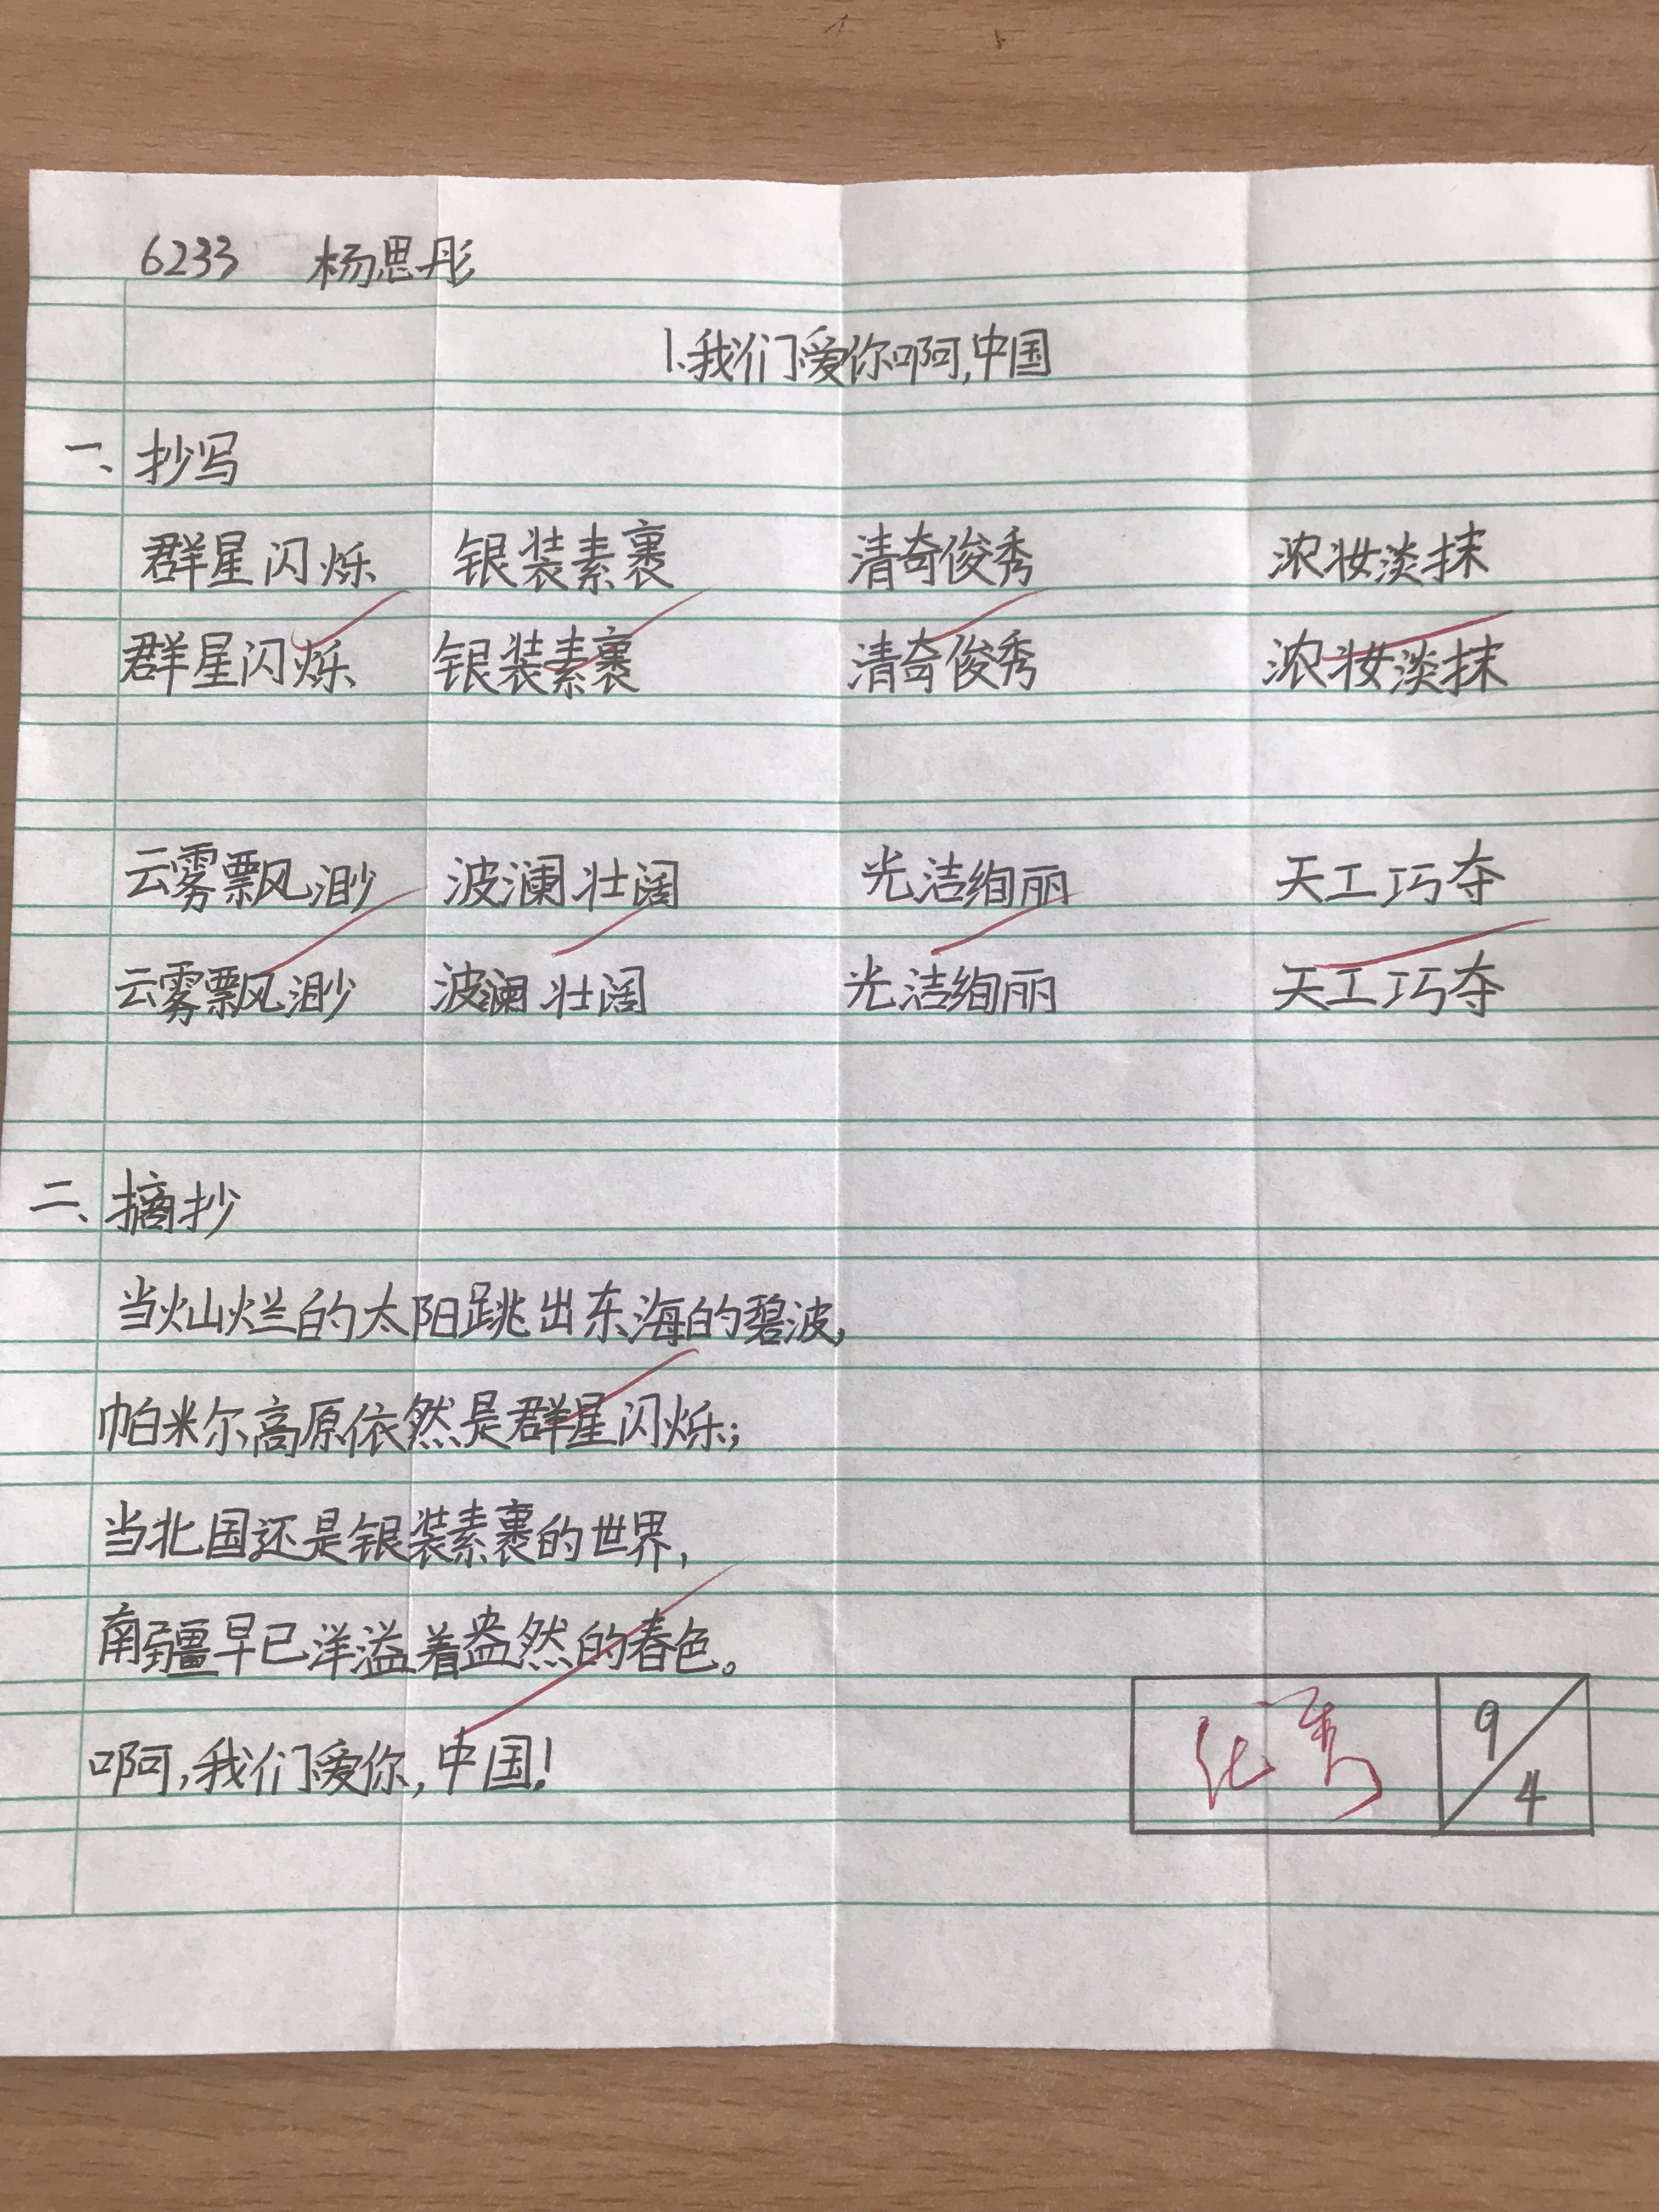 6233 杨思彤
1.我们爱你啊,中国
一、抄写
群星闪烁 银装素裹 清奇俊秀 浓妆淡抹
群星闪烁 银装素裹 清奇俊秀 浓妆淡抹
云雾飘渺 波澜壮阔 光洁绚丽 天工巧夺
云雾飘渺 波澜壮阔 光洁绚丽 天工巧夺
二、摘抄
当灿烂的太阳跳出东海的碧波,
帕米尔高原依然是群星闪烁;
当北国还是银装素裹的世界,
南疆早已洋溢着盎然的春色。
啊,我们爱你,中国!
优秀
9/4